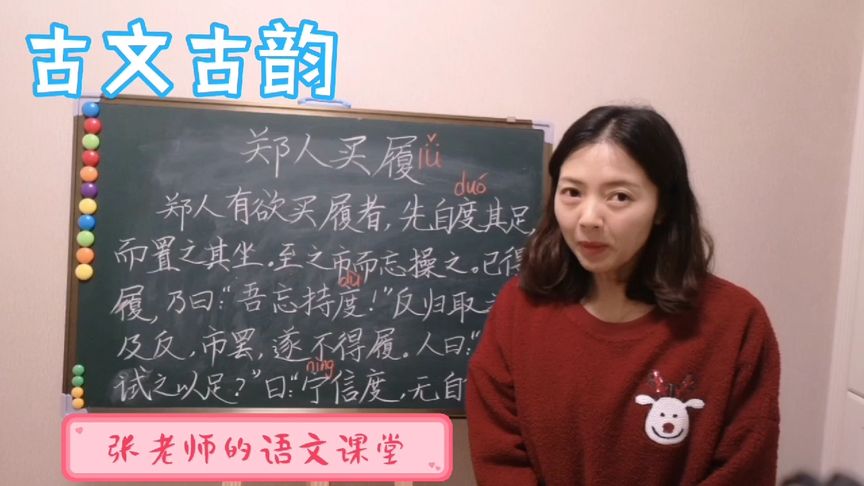 古文古韵
郑人买履lǚ
duó
郑人有欲买履者，先自度其足，
而置之其坐。至之市而忘操之。已得
dù
履，乃曰：“吾忘持度！”反归取
及反，市罢，遂不得履。人曰：“
níng
试之以足？”曰：“宁信度，无自
张老师的语文课堂